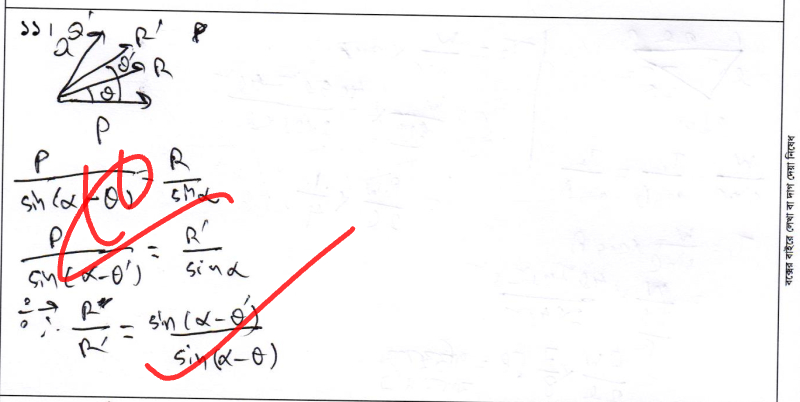 ১১।
Q Q' R' R
θ' θ
P
P/sin(α-θ) = R/sinα
P/sin(α-θ') = R'/sinα
÷→ ∴ R/R' = sin(α-θ')/sin(α-θ)
বক্সের বাইরে লেখা বা দাগ দেয়া নিষেধ